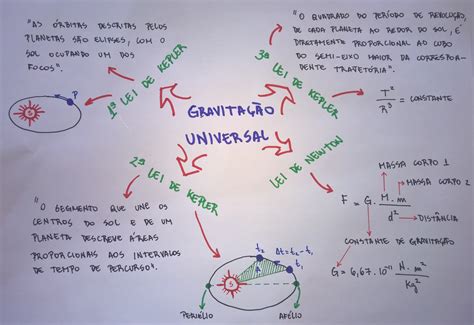 "AS ÓRBITAS DESCRITAS PELOS
PLANETAS SÃO ELIPSES, COM O
SOL OCUPANDO UM DOS
FOCOS"
P
S
1ª LEI DE KEPLER
"O QUADRADO DO PERÍODO DE REVOLUÇÃO
DE CADA PLANETA AO REDOR DO SOL, É
DIRETAMENTE PROPORCIONAL AO CUBO
DO SEMI-EIXO MAIOR DA CORRESPON-
DENTE TRAJETÓRIA".
3ª LEI DE KEPLER
T² / R³ = CONSTANTE
GRAVITAÇÃO
UNIVERSAL
2ª LEI DE KEPLER
"O SEGMENTO QUE UNE OS
CENTROS DO SOL E DE UM
PLANETA DESCREVE ÁREAS
PROPORCIONAIS AOS INTERVALOS
DE TEMPO DE PERCURSO".
t₂
Δt = t₂ - t₁
t₁
A
S
PERIÉLIO
AFÉLIO
LEI DE NEWTON
MASSA CORPO 1
MASSA CORPO 2
F = G. M. m / d²
DISTÂNCIA
CONSTANTE DE GRAVITAÇÃO
G = 6,67. 10⁻¹¹ N. m² / Kg²